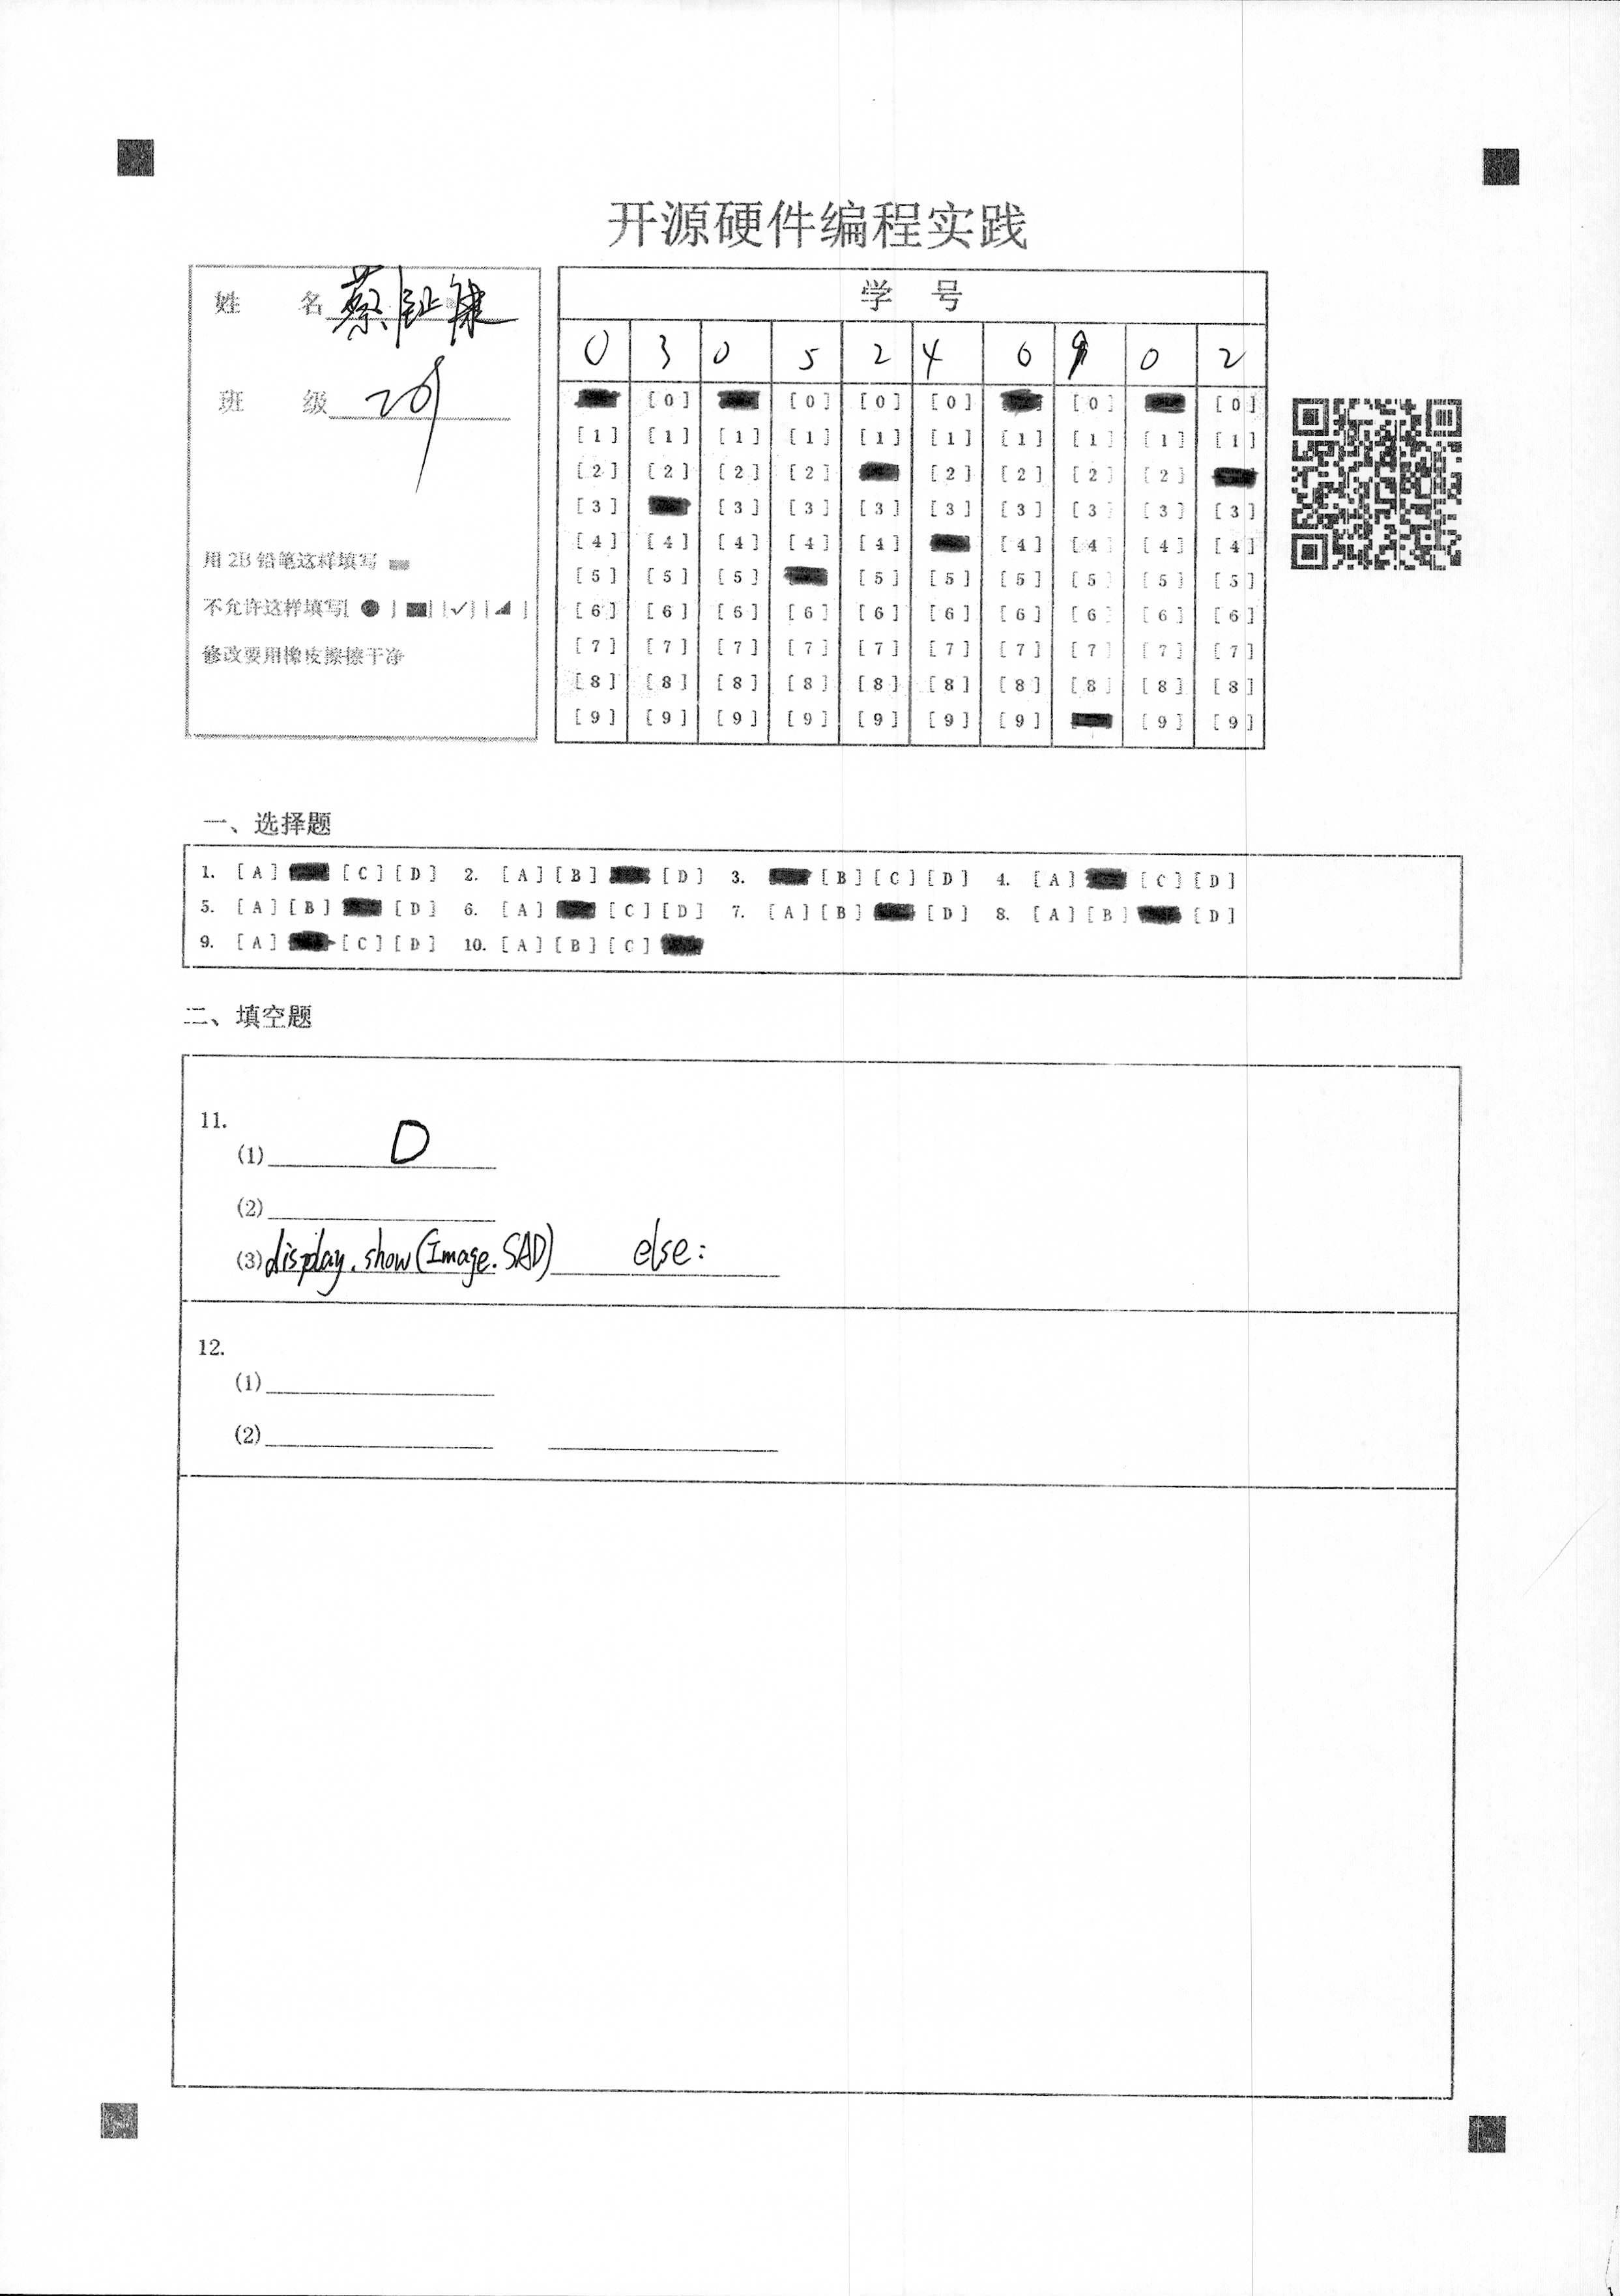 开源硬件编程实践
姓 名 蔡钲键
班 级 209
用 2B 铅笔这样填写
不允许这样填写[ ● ] [■] [✓] [◢]
修改要用橡皮擦擦干净
学 号
0 3 0 5 2 4 0 9 0 2
[0] [0] [0] [0] [0] [0]
[1] [1] [1] [1] [1] [1] [1] [1] [1] [1]
[2] [2] [2] [2] [2] [2] [2] [2]
[3] [3] [3] [3] [3] [3] [3] [3] [3]
[4] [4] [4] [4] [4] [4] [4] [4] [4]
[5] [5] [5] [5] [5] [5] [5] [5] [5]
[6] [6] [6] [6] [6] [6] [6] [6] [6] [6]
[7] [7] [7] [7] [7] [7] [7] [7] [7] [7]
[8] [8] [8] [8] [8] [8] [8] [8] [8] [8]
[9] [9] [9] [9] [9] [9] [9] [9] [9]
一、选择题
1. [A] [C] [D] 2. [A] [B] [D] 3. [B] [C] [D] 4. [A] [C] [D]
5. [A] [B] [D] 6. [A] [C] [D] 7. [A] [B] [D] 8. [A] [B] [D]
9. [A] [C] [D] 10. [A] [B] [C]
二、填空题
11.
(1) D
(2)
(3) display.show(Image.SAD) else:
12.
(1)
(2)